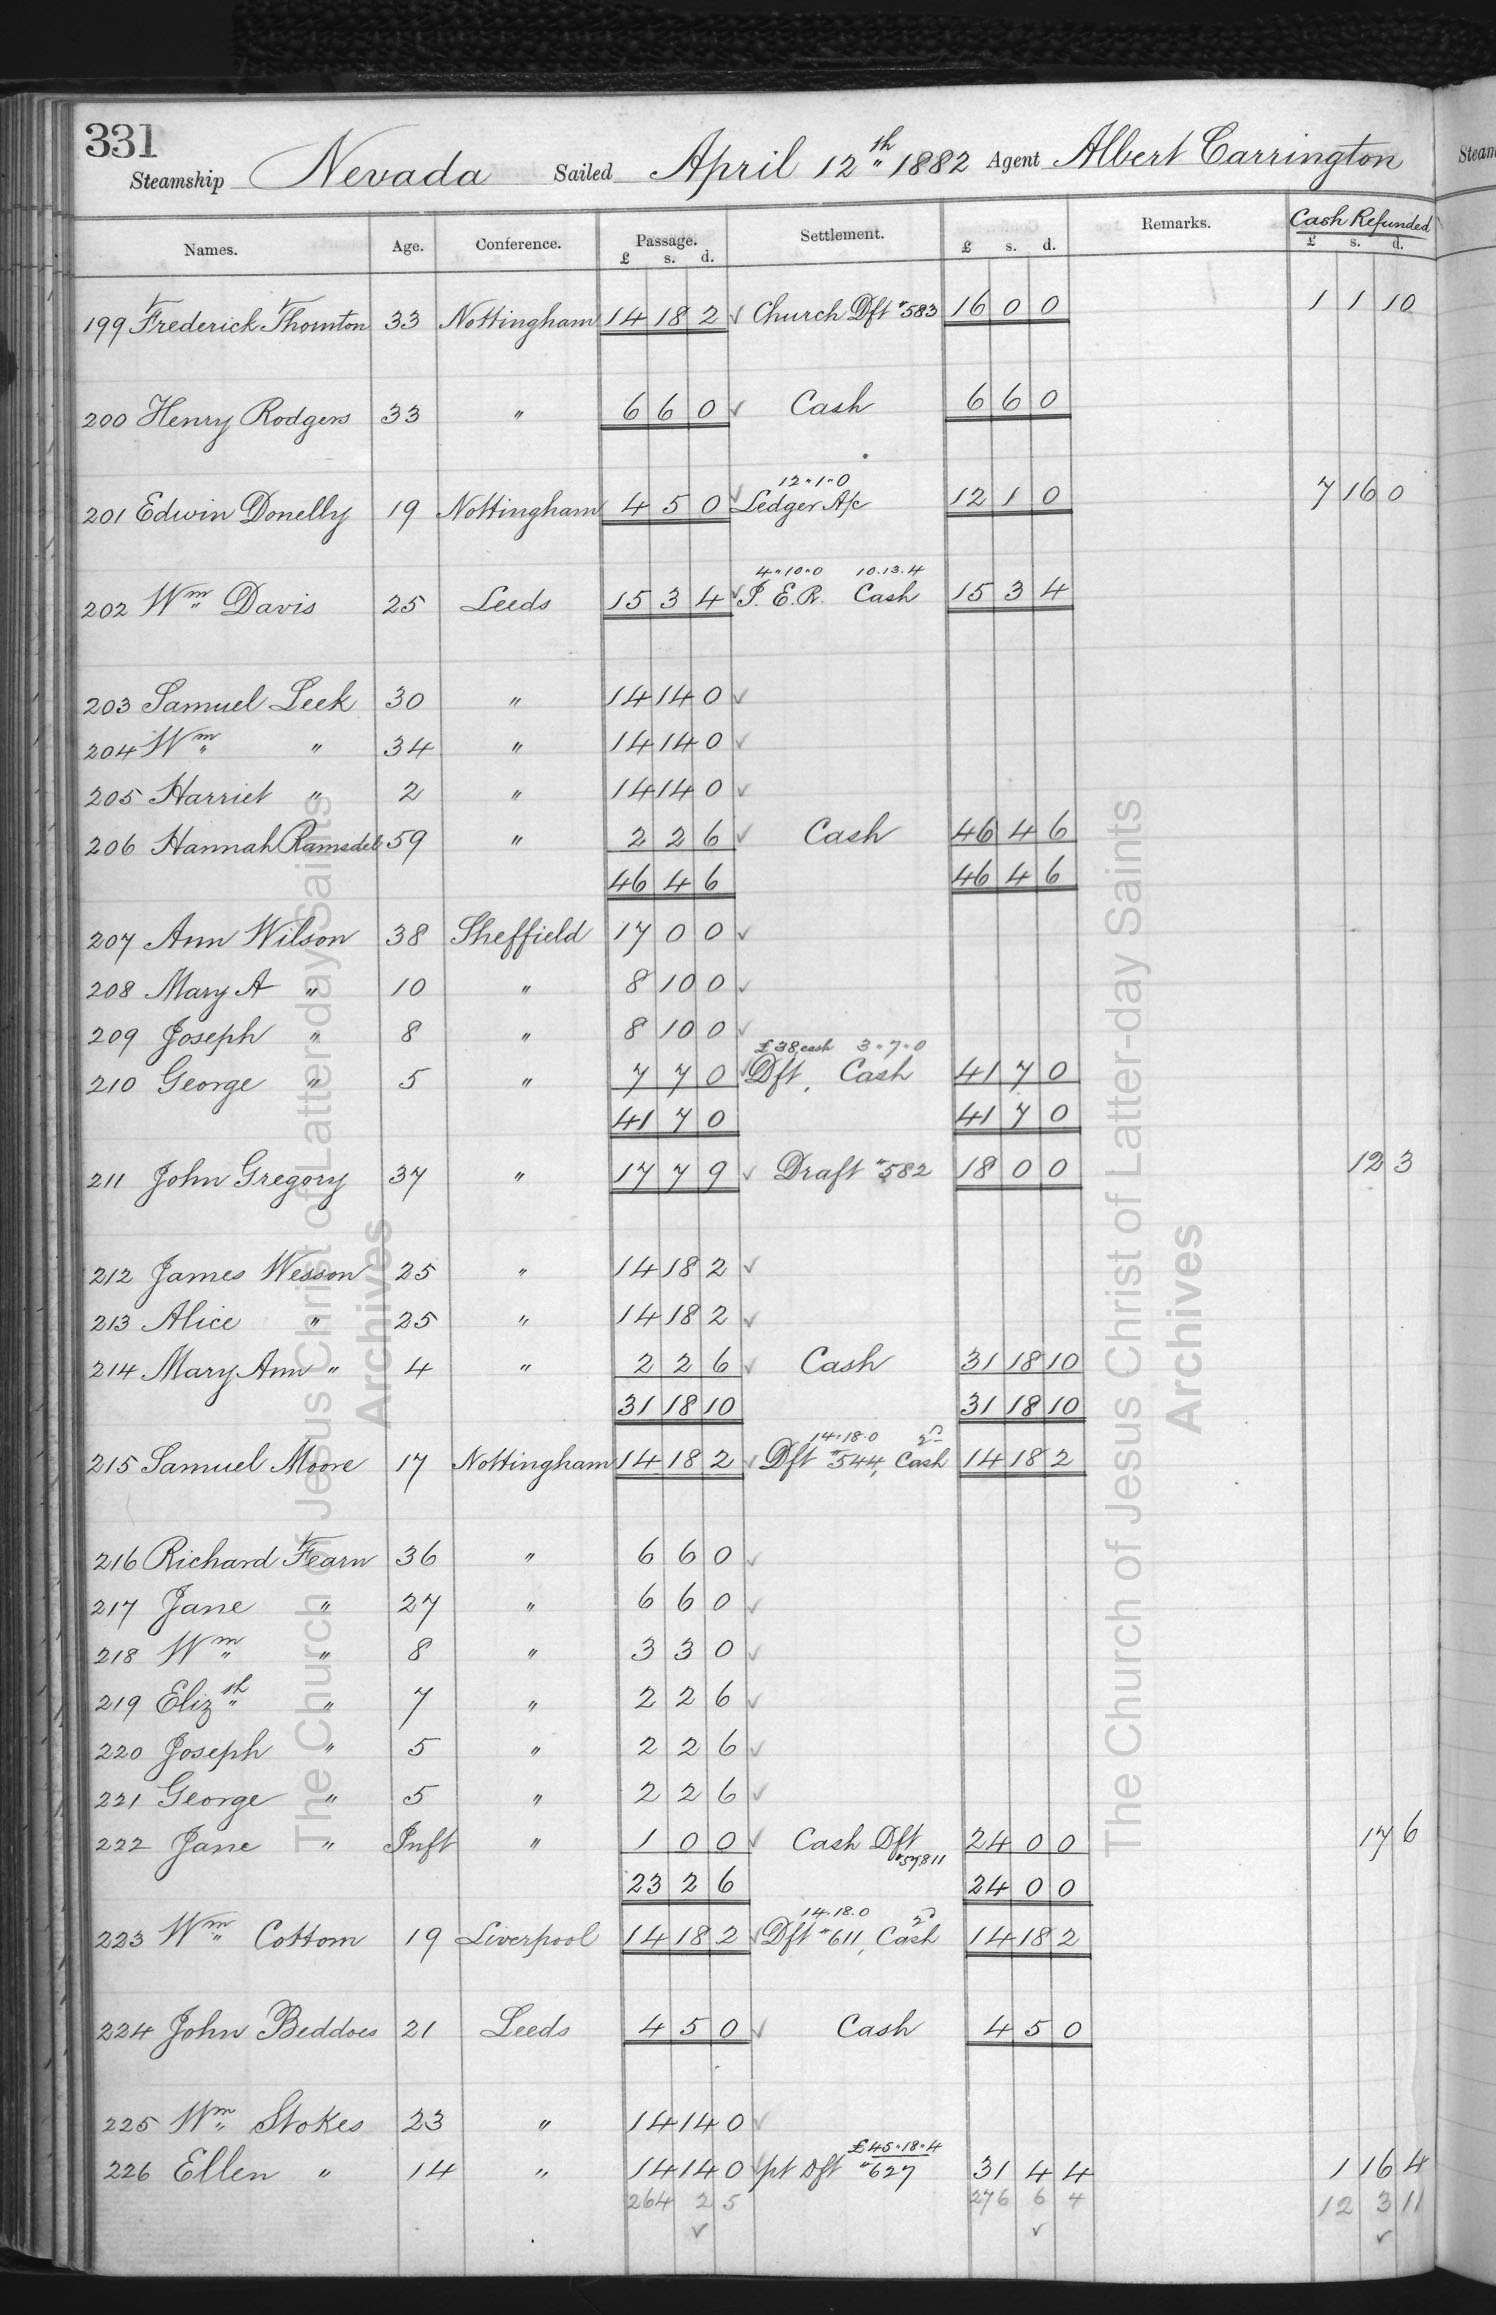 331
Steamship Nevada Sailed April 12th 1882 Agent Albert Carrington
Names. Age. Conference. Passage. £ s. d. Settlement. £ s. d. Remarks. Cash Refunded £ s. d.
199 Frederick Thornton 33 Nottingham 14 18 2 ✓ Church Dft "583 16 0 0 1 1 10
200 Henry Rodgers 33 " 6 6 0 ✓ Cash 6 6 0
12"1"0
201 Edwin Donelly 19 Nottingham 4 5 0 ✓ Ledger A/c 12 1 0 7 16 0
4"10"0 10.13.4
202 Wm Davis 25 Leeds 15 3 4 ✓ P. E. R. Cash 15 3 4
203 Samuel Leek 30 " 14 14 0 ✓
204 Wm " 34 " 14 14 0 ✓
205 Harriet " 2 " 14 14 0 ✓
206 Hannah Ramsdel 59 " 2 2 6 ✓ Cash 46 4 6
46 4 6 46 4 6
207 Ann Wilson 38 Sheffield 17 0 0 ✓
208 Mary A " 10 " 8 10 0 ✓
209 Joseph " 8 " 8 10 0 ✓
£38,cash 3"7"0
210 George " 5 " 7 7 0 ✓ Dft, Cash 41 7 0
41 7 0 41 7 0
211 John Gregory 37 " 17 7 9 ✓ Draft "582 18 0 0 12 3
212 James Wesson 25 " 14 18 2 ✓
213 Alice " 25 " 14 18 2 ✓
214 Mary Ann " 4 " 2 2 6 ✓ Cash 31 18 10
31 18 10 31 18 10
14.18.0 2d
215 Samuel Moore 17 Nottingham 14 18 2 ✓ Dft "544, Cash 14 18 2
216 Richard Fearn 36 " 6 6 0 ✓
217 Jane " 27 " 6 6 0 ✓
218 Wm " 8 " 3 3 0 ✓
219 Elizth " 7 " 2 2 6 ✓
220 Joseph " 5 " 2 2 6 ✓
221 George " 5 " 2 2 6 ✓
222 Jane " Inft " 1 0 0 ✓ Cash Dft 24 0 0 17 6
"57811
23 2 6 24 0 0
14.18.0 2d
223 Wm Cottom 19 Liverpool 14 18 2 ✓ Dft "611, Cash 14 18 2
224 John Beddoes 21 Leeds 4 5 0 ✓ Cash 4 5 0
225 Wm Stokes 23 " 14 14 0 ✓
£45"18"4
226 Ellen " 14 " 14 14 0 ✓ pt Dft "627 31 4 4 1 16 4
264 2 5 276 6 4 12 3 11
✓ ✓ ✓
The Church of Jesus Christ of Latter-day Saints
Archives
The Church of Jesus Christ of Latter-day Saints
Archives
Steam